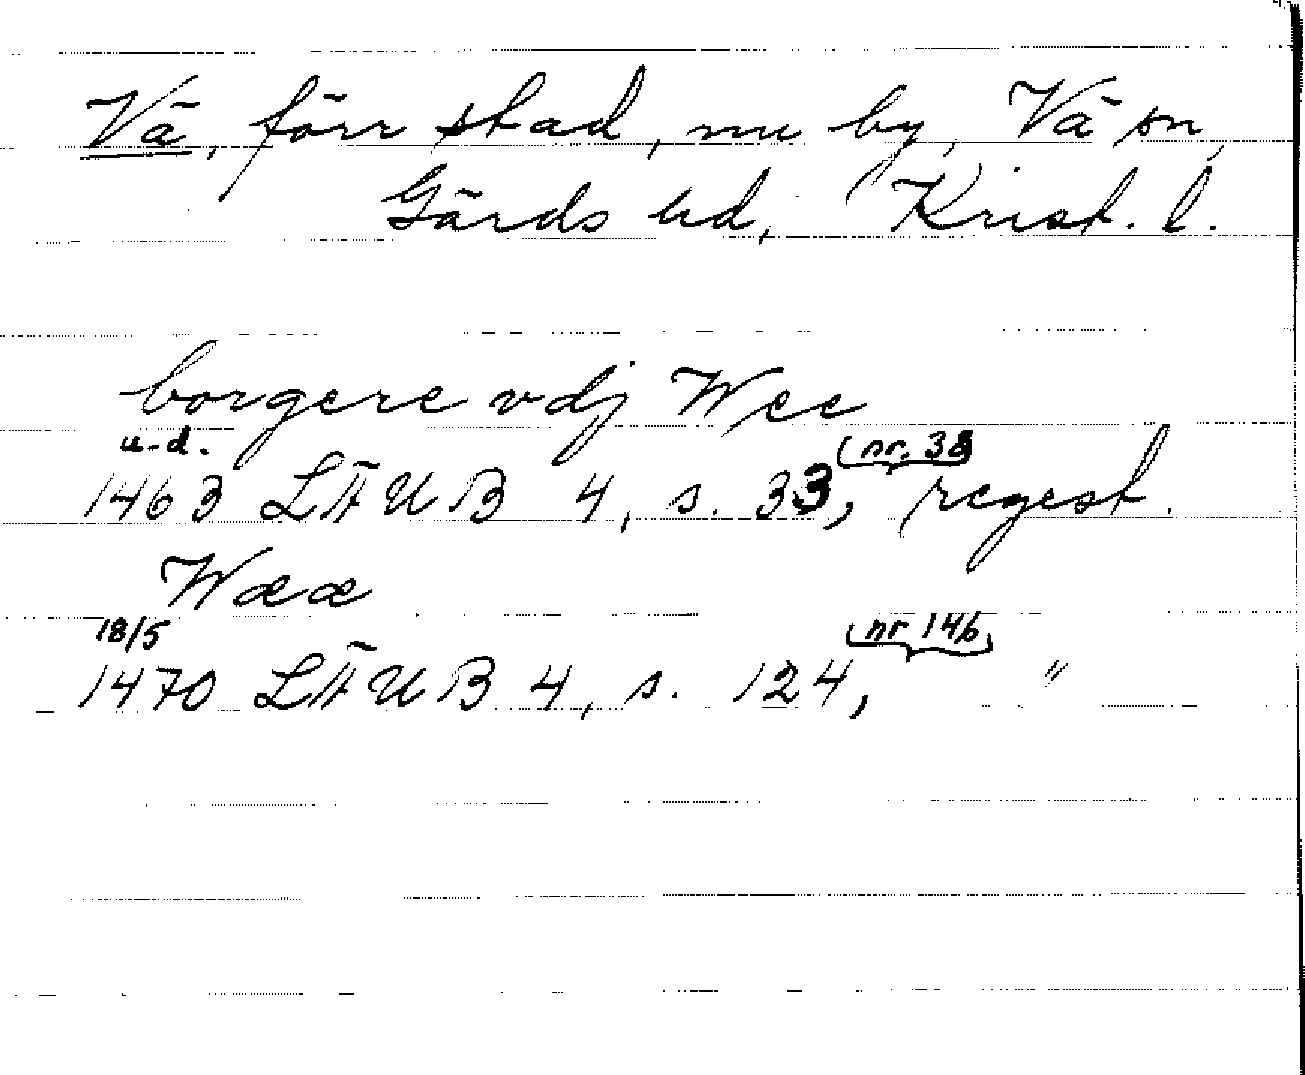 Vä, förr stad, nu by, Vä sn,
Gärds hd, Krist. l.
borgere vdj Wee
u.d.
1463 LÄUB 4, s. 33, (nr. 38) regest.
Wææ
18/5
1470 LÄUB 4, s. 124, (nr 146) "